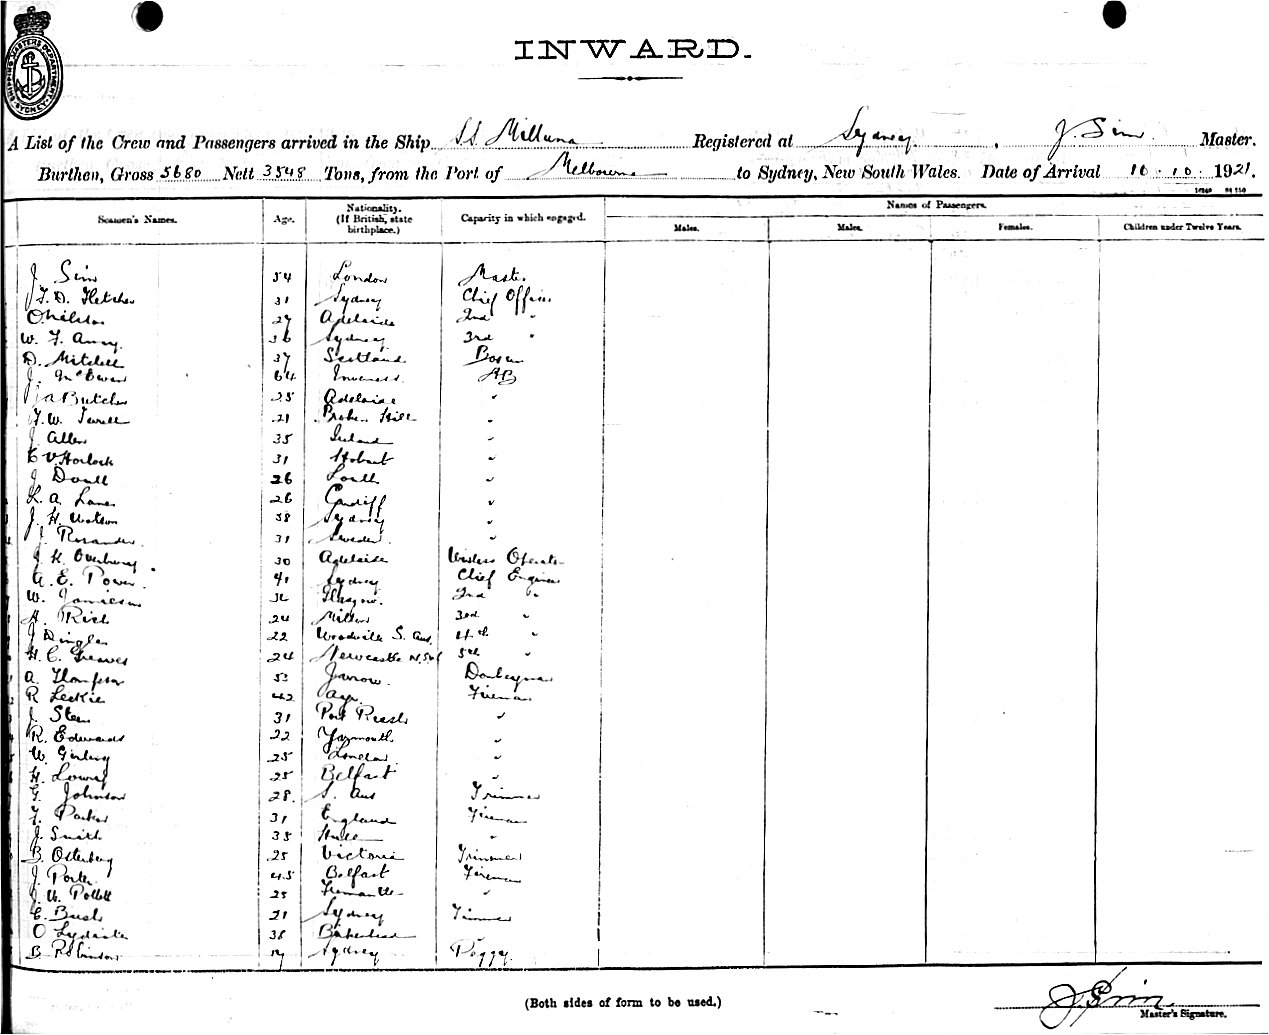 SHIPPING MASTERS DEPARTMENT SYDNEY
INWARD.
A List of the Crew and Passengers arrived in the Ship SS Milluna Registered at Sydney, J. Sim. Master.
Burthen, Gross 5680 Nett 3548 Tons, from the Port of Melbourne to Sydney, New South Wales. Date of Arrival 10.10.1921.
Seamen's Names. Age. Nationality. (If British, state birthplace.) Capacity in which engaged. Names of Passengers.
Males. Males. Females. Children under Twelve Years.
J. Sim 54 London Master
J. D. Fletcher 31 Sydney Chief Officer
O. Nilsson 27 Adelaide 2nd "
W. F. 36 Sydney 3rd "
D. Mitchell 37 Scotland Bosun
J. McEwen 64 Inverness AB
A Butcher 25 Adelaide "
F. W. Terrell 21 Broken Hill "
J. Allen 35 Ireland "
E V Horlock 31 Hobart "
J 26 Louth "
L. A. Lane 26 Cardiff "
J. H. Watson 38 Sydney "
J. Rosander 31 Sweden "
J. K. Overbury 30 Adelaide Wireless Operator
A. E. Power 41 Sydney Chief Engineer
W. Jamieson Glasgow. 2nd "
H. Rich 24 Milton 3rd "
J Dingle 22 Woodville S. Aus. 4th "
H. C. Greaves 24 Newcastle N.S.W 5th "
A. Thompson 53 Jarrow. Donkeyman
R Leckie 42 Ayr. Fireman
J. Steen 31 Port "
R. Edwards 22 Yarmouth "
W. 25 London "
H. Lowry 25 Belfast "
G. Johnson 28. S. Aus Trimmer
F. Parker 31 England Fireman
J. Smith 35 Hull "
B. Osterberg 25 Victoria Trimmer
J. Porter 45 Belfast Fireman
J. W. Pollett 25 Fremantle "
C. Bush 21 Sydney Trimmer
O 38 Birkenhead "
B. Robinson 19 Sydney Peggy.
(Both sides of form to be used.)
J. Sim
Master's Signature.